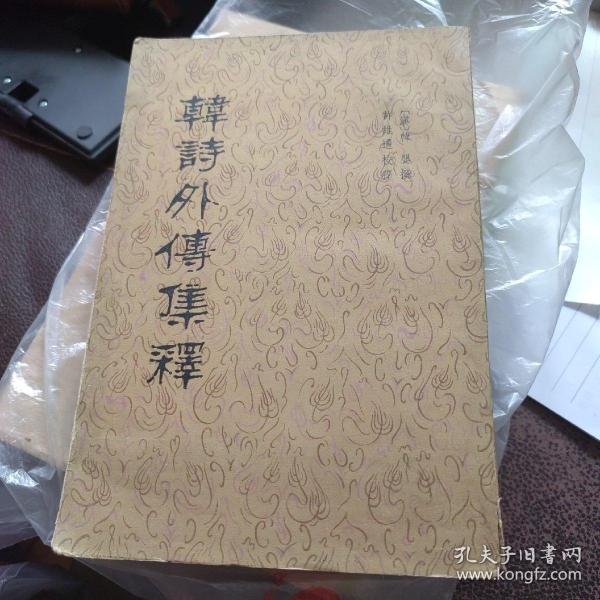 韓詩外傳集釋
〔漢〕韓嬰撰
許維遹校釋
孔夫子旧书网
www.kongfz.com